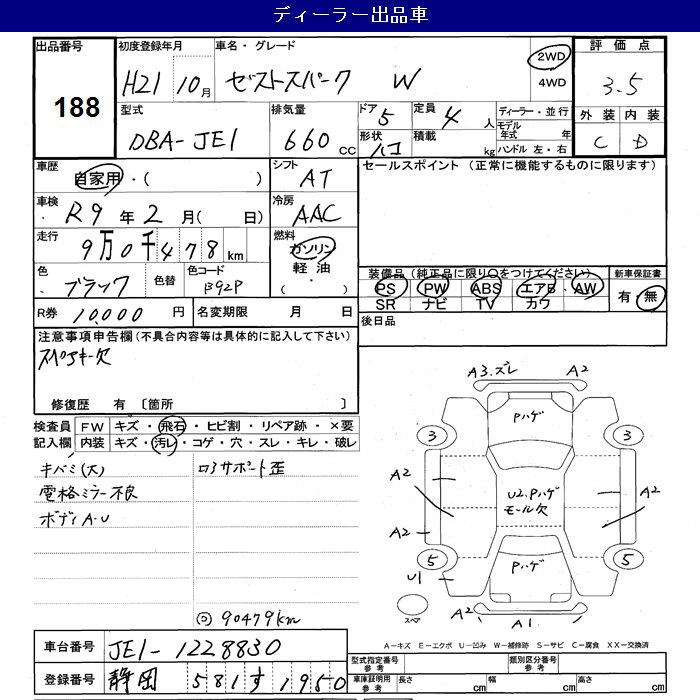 ディーラー出品車
出品番号 188
初度登録年月 H21 10月
車名・グレード ゼストスパーク W
2WD
4WD
評価点 3.5
外装 内装
C D
型式 DBA-JE1
排気量 660 CC
ドア 5
形状 ハコ
定員 4人
積載 kg
ディーラー・並行
モデル年式 年
ハンドル 左・右
車歴 自家用・( )
シフト AT
セールスポイント (正常に機能するものに限ります)
車検 R9年2月( 日)
冷房 AAC
走行 9万0千478km
燃料 ガソリン
軽油・( )
色 ブラック
色替
色コード B92P
装備品(純正品に限り○をつけてください)
PS PW ABS エアB AW
SR ナビ TV カワ
新車保証書
有・無
R券 10,000円
名変期限 月 日
後日品
注意事項申告欄(不具合内容等は具体的に記入して下さい)
スペアキー欠
修復歴 有 〔箇所 〕
検査員 FW キズ・飛石・ヒビ割・リペア跡・×要
記入欄 内装 キズ・汚レ・コゲ・穴・スレ・キレ・破レ
キバミ(大)
電格ミラー不良
ボディA・U
ロアサポート歪
90479km
A3.ズレ A2
Pハゲ
3 3
A2
U2.Pハゲ
モール欠
A2
A2
5 5
Pハゲ
U1
スペア
A2 A1
A-キズ E-エクボ U-凹み W-補修跡 S-サビ C-腐食 XX-交換済
車台番号 JE1-1228830
登録番号 静岡 581 す 1950
型式指定番号 参考
類別区分番号 参考
車庫証明用 参考
長さ cm 幅 cm 高さ cm